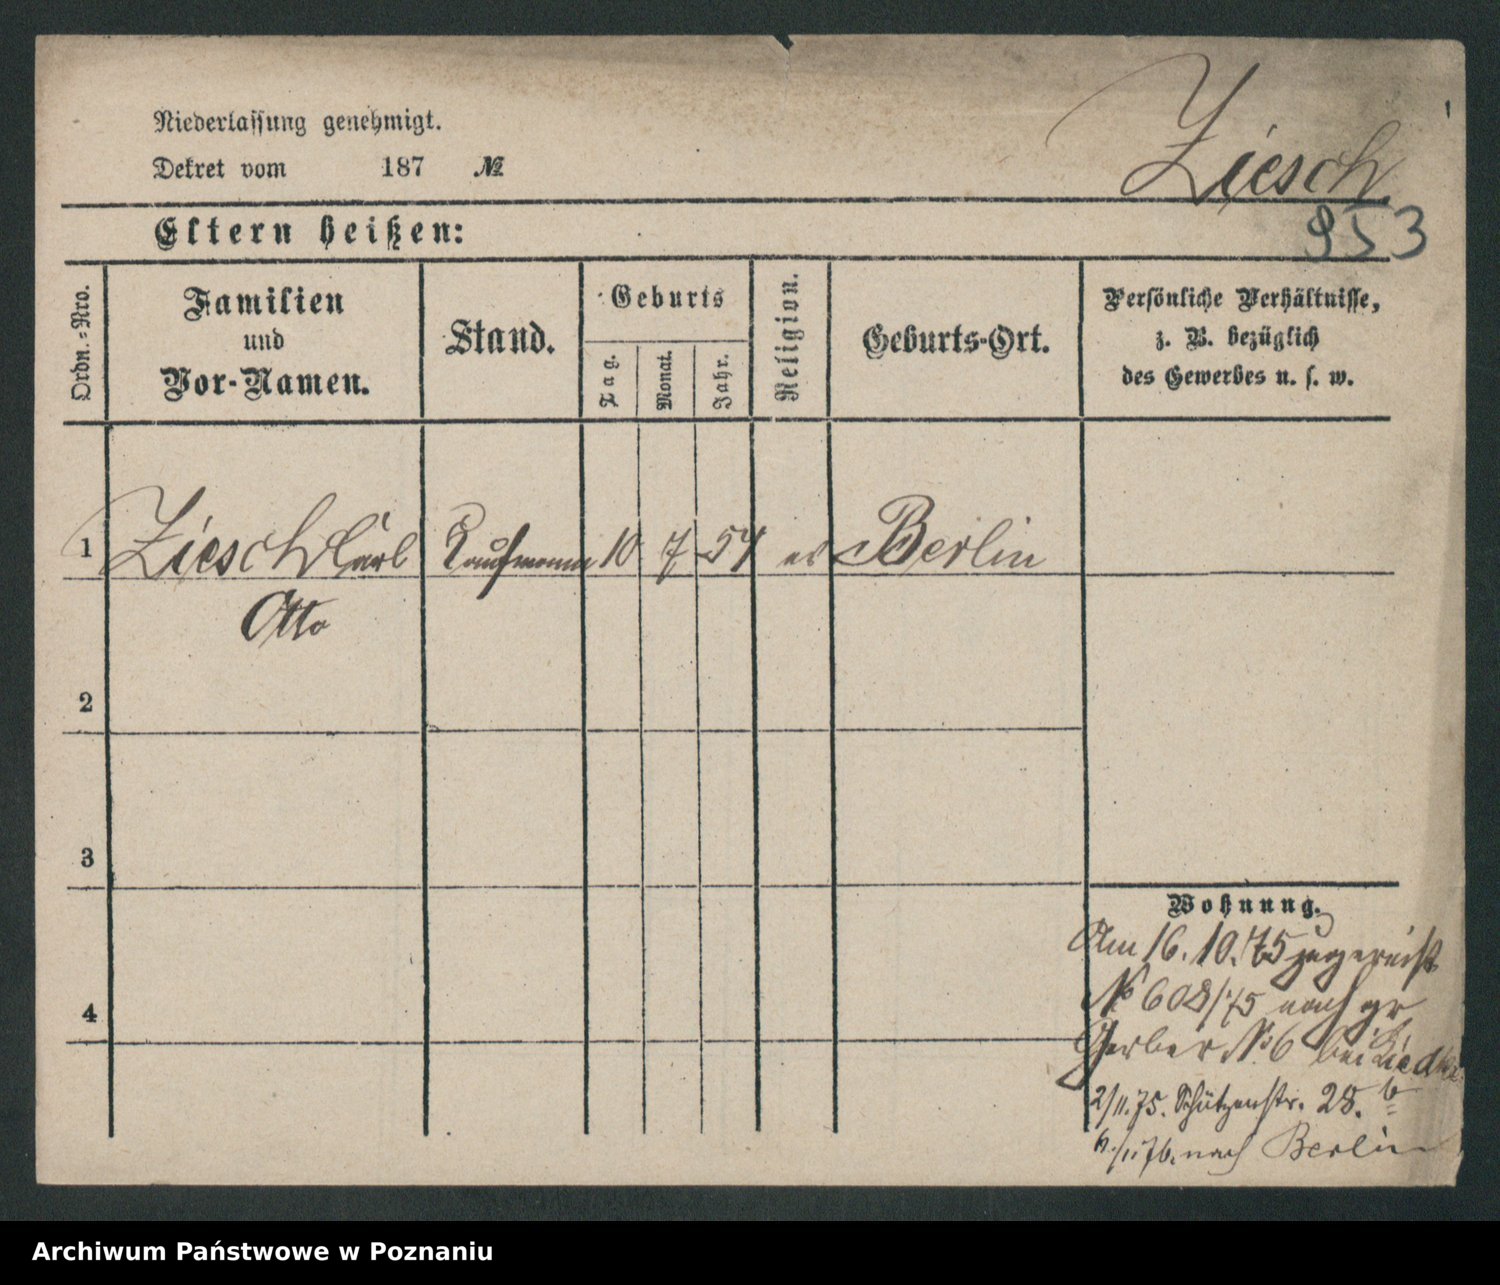 Niederlassung genehmigt.
Dekret vom 187 №
Ziesch
Eltern heißen:
953
Ordn.-Nro.
Familien
und
Vor-Namen.
Stand.
Geburts
Tag.
Monat.
Jahr.
Religion.
Geburts-Ort.
Persönliche Verhältnisse,
z. B. bezüglich
des Gewerbes u. s. w.
1 Ziesch Carl Kaufmann 10 7 54 ev Berlin
Otto
2
3
4
Wohnung.
Am 16. 10. 75 zugereist
No 608/75 nach gr
Gerber No 6 bei
2/11. 75. Schützenstr. 28. b
76. nach Berlin
Archiwum Państwowe w Poznaniu